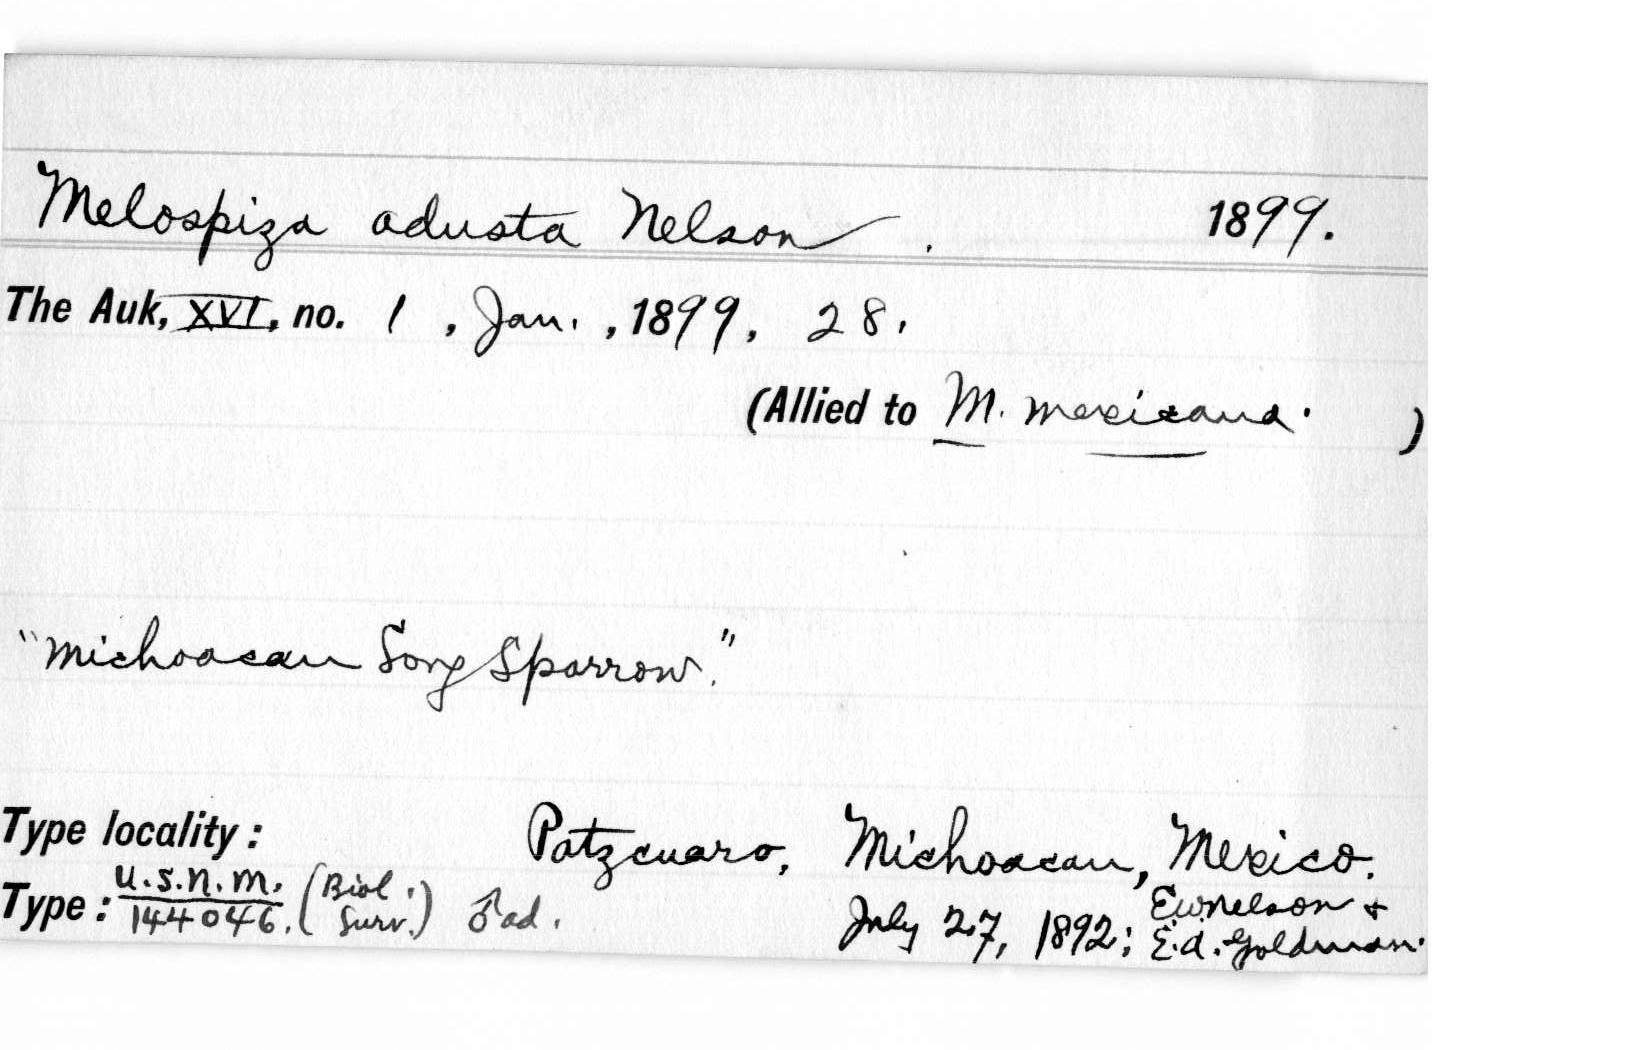 Melospiza adusta Nelson. 1899.
The Auk, XVI, no. 1, Jan., 1899, 28.
(Allied to M. mexicana. )
"Michoacan Song Sparrow."
Type locality: Patzcuaro, Michoacan, Mexico.
Type: U.S.N.M. 144046. (Biol. Surv.) ♂ ad. July 27, 1892; E.W. Nelson + E.A. Goldman.